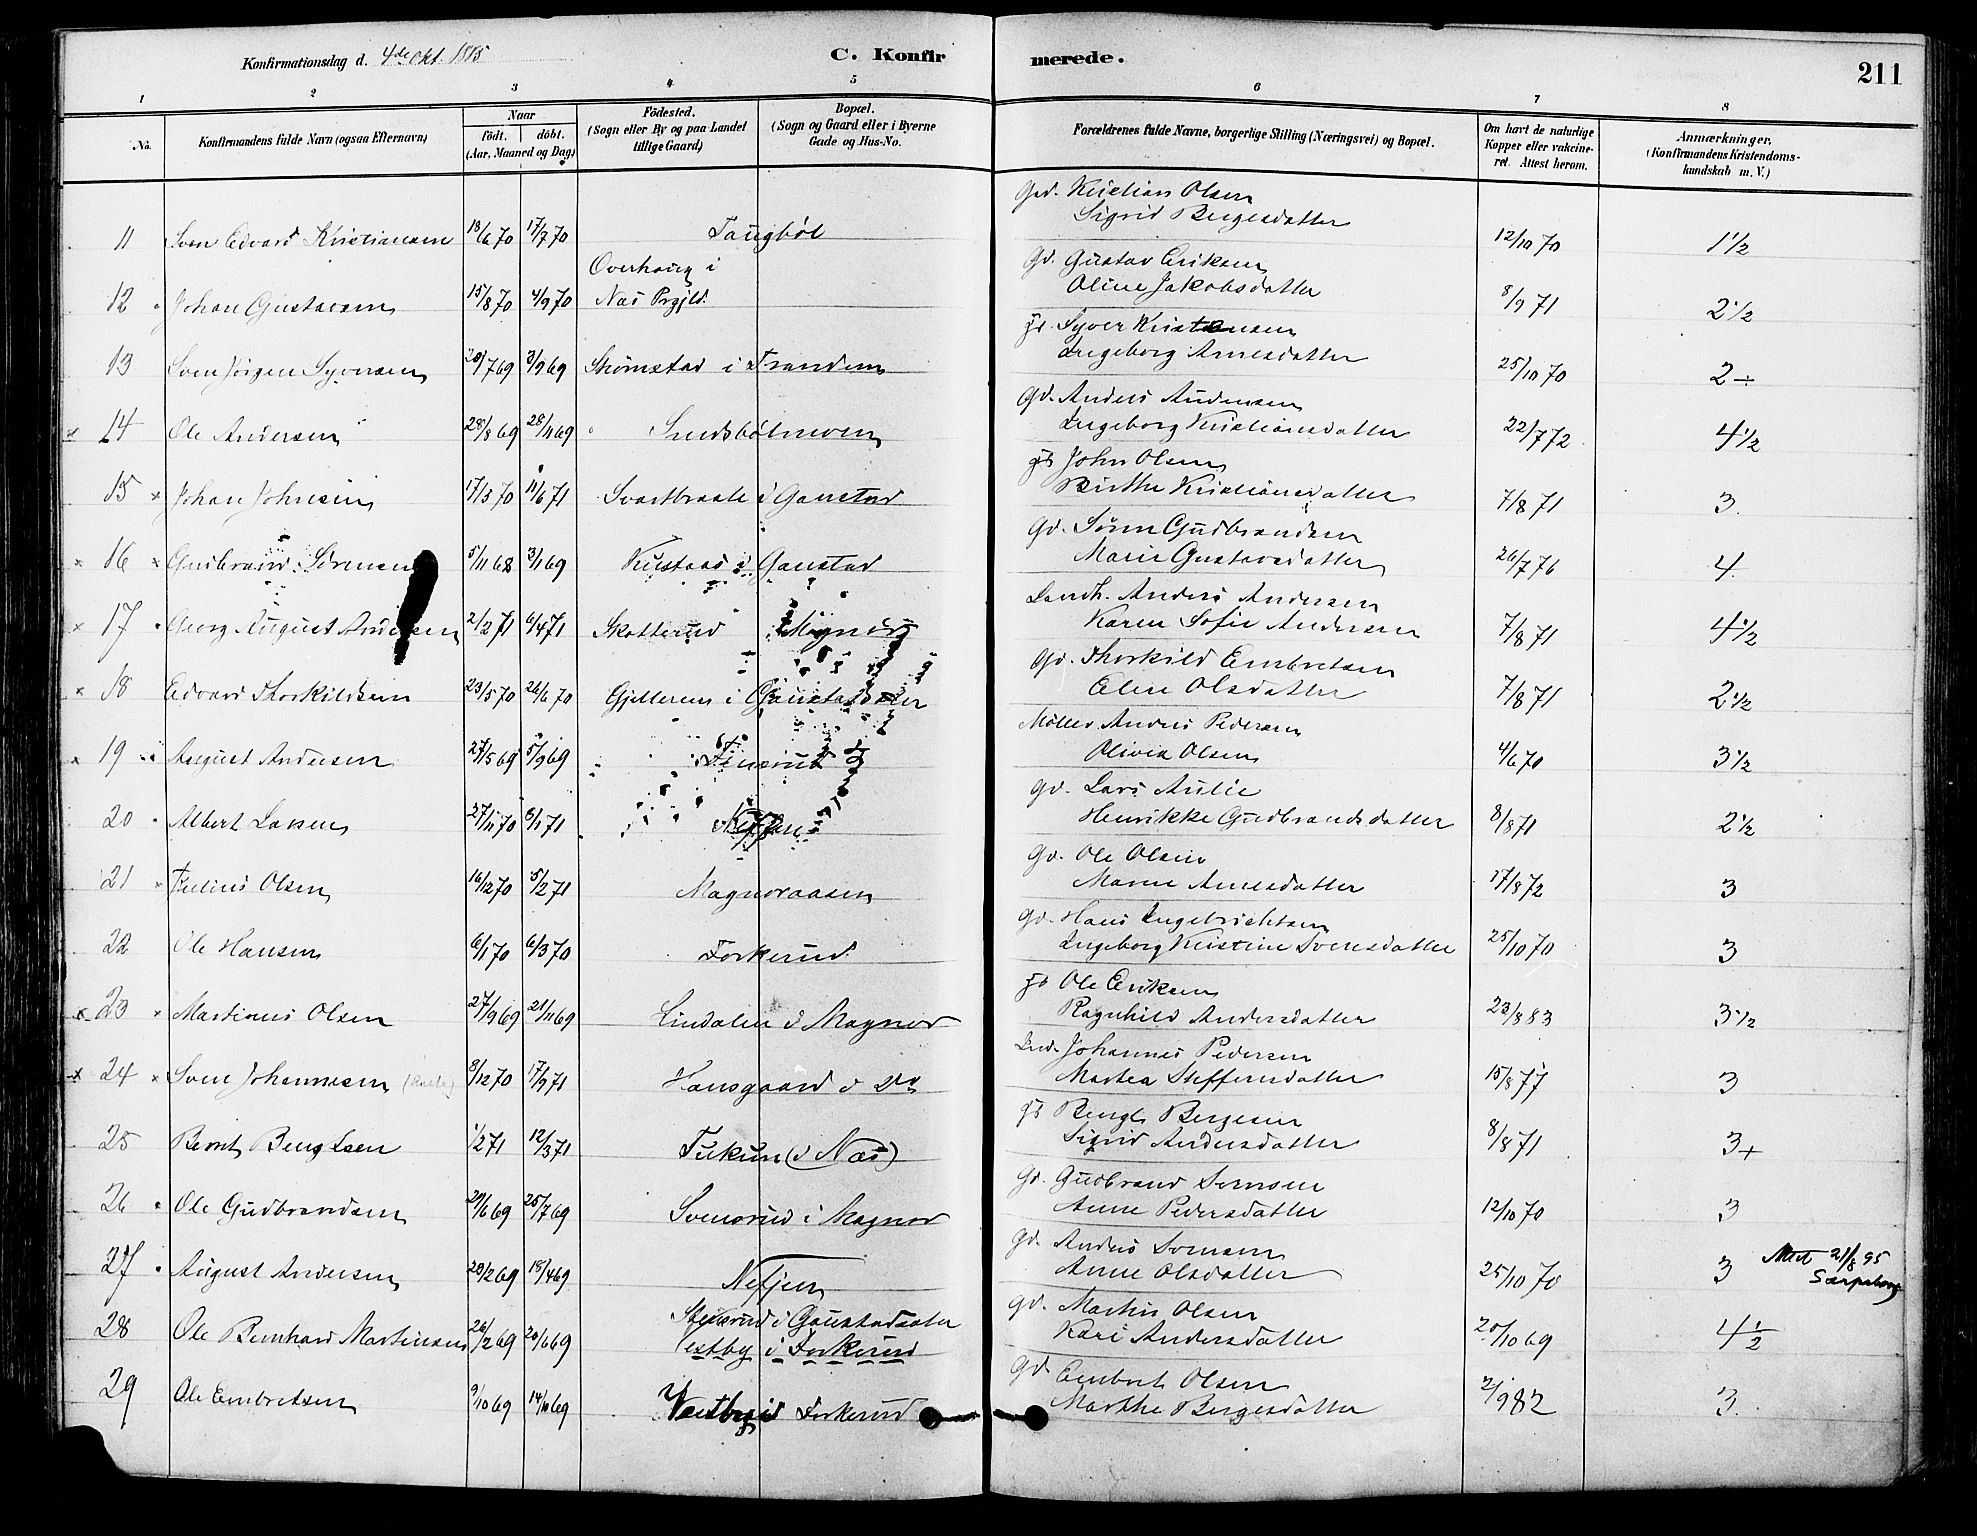 Konfirmationsdag d. 4de Okt. 1885
C. Konfirmerede.
211
1 2 3 4 5 6 7 8
No.
Konfirmandens fulde Navn (ogsaa Efternavn)
Naar
født. døbt.
(Aar, Maaned og Dag)
Fødested.
(Sogn eller By og paa Landet tillige Gaard)
Bopæl.
(Sogn og Gaard eller i Byerne Gade og Hus-No.
Forældrenes fulde Navne, borgerlige Stilling (Næringsvei) og Bopæl.
Om havt de naturlige Kopper eller vakcineret. Attest herom.
Anmærkninger.
(Konfirmandens Kristendomskundskab m. V.)
Grd. Kristian Olsen
Sigrid Bergesdatter
11 Sven Edvard Kristiansen 18/6 70 17/7 70 Taugbøl 12/10 70 1 1/2
Gd. Gustav Eriksen
Oline Jakobsdatter
12 Johan Gustavsen 15/8 70 4/9 70 Overhaug i Næs Prgjld. 8/9 71 2 1/2
Js. Syver Kristiansen
Ingeborg Arnesdatter
13 Sven Jørgen Syversen 20/7 69 3/9 69 Strømstad i Tranden 25/10 70 2 ÷
Gd. Anders Andersen
Ingeborg Kristiansdatter
14 Ole Andersen 28/8 69 28/11 69 22/7 72 4 1/2
Js John Olsen
Birthe Kristiansdatter
15 Johan Johnsen 17/5 70 11/6 71 Svartbraate i Gaustad 7/8 71 3.
Gd. Søren Gudbrandsen
Marie Gustavsdatter
16 Gudbrand Sørensen 5/11 68 3/1 69 i Gaustad 26/7 76 4.
Landh. Anders Andersen
Karen Sofie Andersen
17 Georg August Andersen 2/2 71 6/4 71 Skotterud Magnor 7/8 71 4 1/2
Gd. Thorkild Embretsen
Eline Olsdatter
18 Edvard Thorkildsen 23/5 70 26/6 70 i Gaustadsæter 7/8 71 2 1/2
Møller Anders Pedersen
Olivia Olsen
19 August Andersen 27/5 69 5/9 69 4/6 70 3 1/2
Gd. Lars Aulie
Henrikke Gudbrandsdatter
20 Albert Larsen 27/11 70 8/1 71 8/8 71 2 1/2
Gd. Ole Olsen
Maren Arnesdatter
21 Julius Olsen 16/12 70 5/2 71 Magnoraasen 17/8 72 3
Gd. Hans Ingebrichtsen
Ingeborg Kristine Svensdatter
22 Ole Hansen 6/1 70 6/3 70 Forkerud 25/10 70 3
Js Ole Eriksen
Ragnhild Andersdatter
23 Martinus Olsen 27/9 69 21/11 69 Lindalen i Magnor 23/8 83 3 1/2
Ind. Johannes Pedersen
Martea Steffensdatter
24 Sven Johannesen 8/12 70 17/9 71 Hansgaard i Do 15/8 77 3
Js Bengt Bergesen
Sigrid Andersdatter
25 Bernt Bengtsen 1/2 71 12/3 71 (i Næs) 8/8 71 3+
Gd. Gudbrand Svensen
Anne Pedersdatter
26 Ole Gudbrandsen 29/6 69 25/7 69 Svensrud i Magnor 12/10 70 3
Gd. Anders Svensen
Anne Olsdatter
27 August Andersen 20/2 69 18/4 69 Nefjen 25/10 70 3 Attest 21/8 95 Sarpsborg
Gd. Martin Olsen
Kari Andersdatter
28 Ole Bernhard Martinsen 26/2 69 20/6 69 Stensrud i Gaustadsæter Vestby i Forkerud 20/10 69 4 1/2
Gd. Embret Olsen
Marthe Bergesdatter
29 Ole Embretsen 9/10 69 14/11 69 Vestby i Forkerud 2/9 82 3.